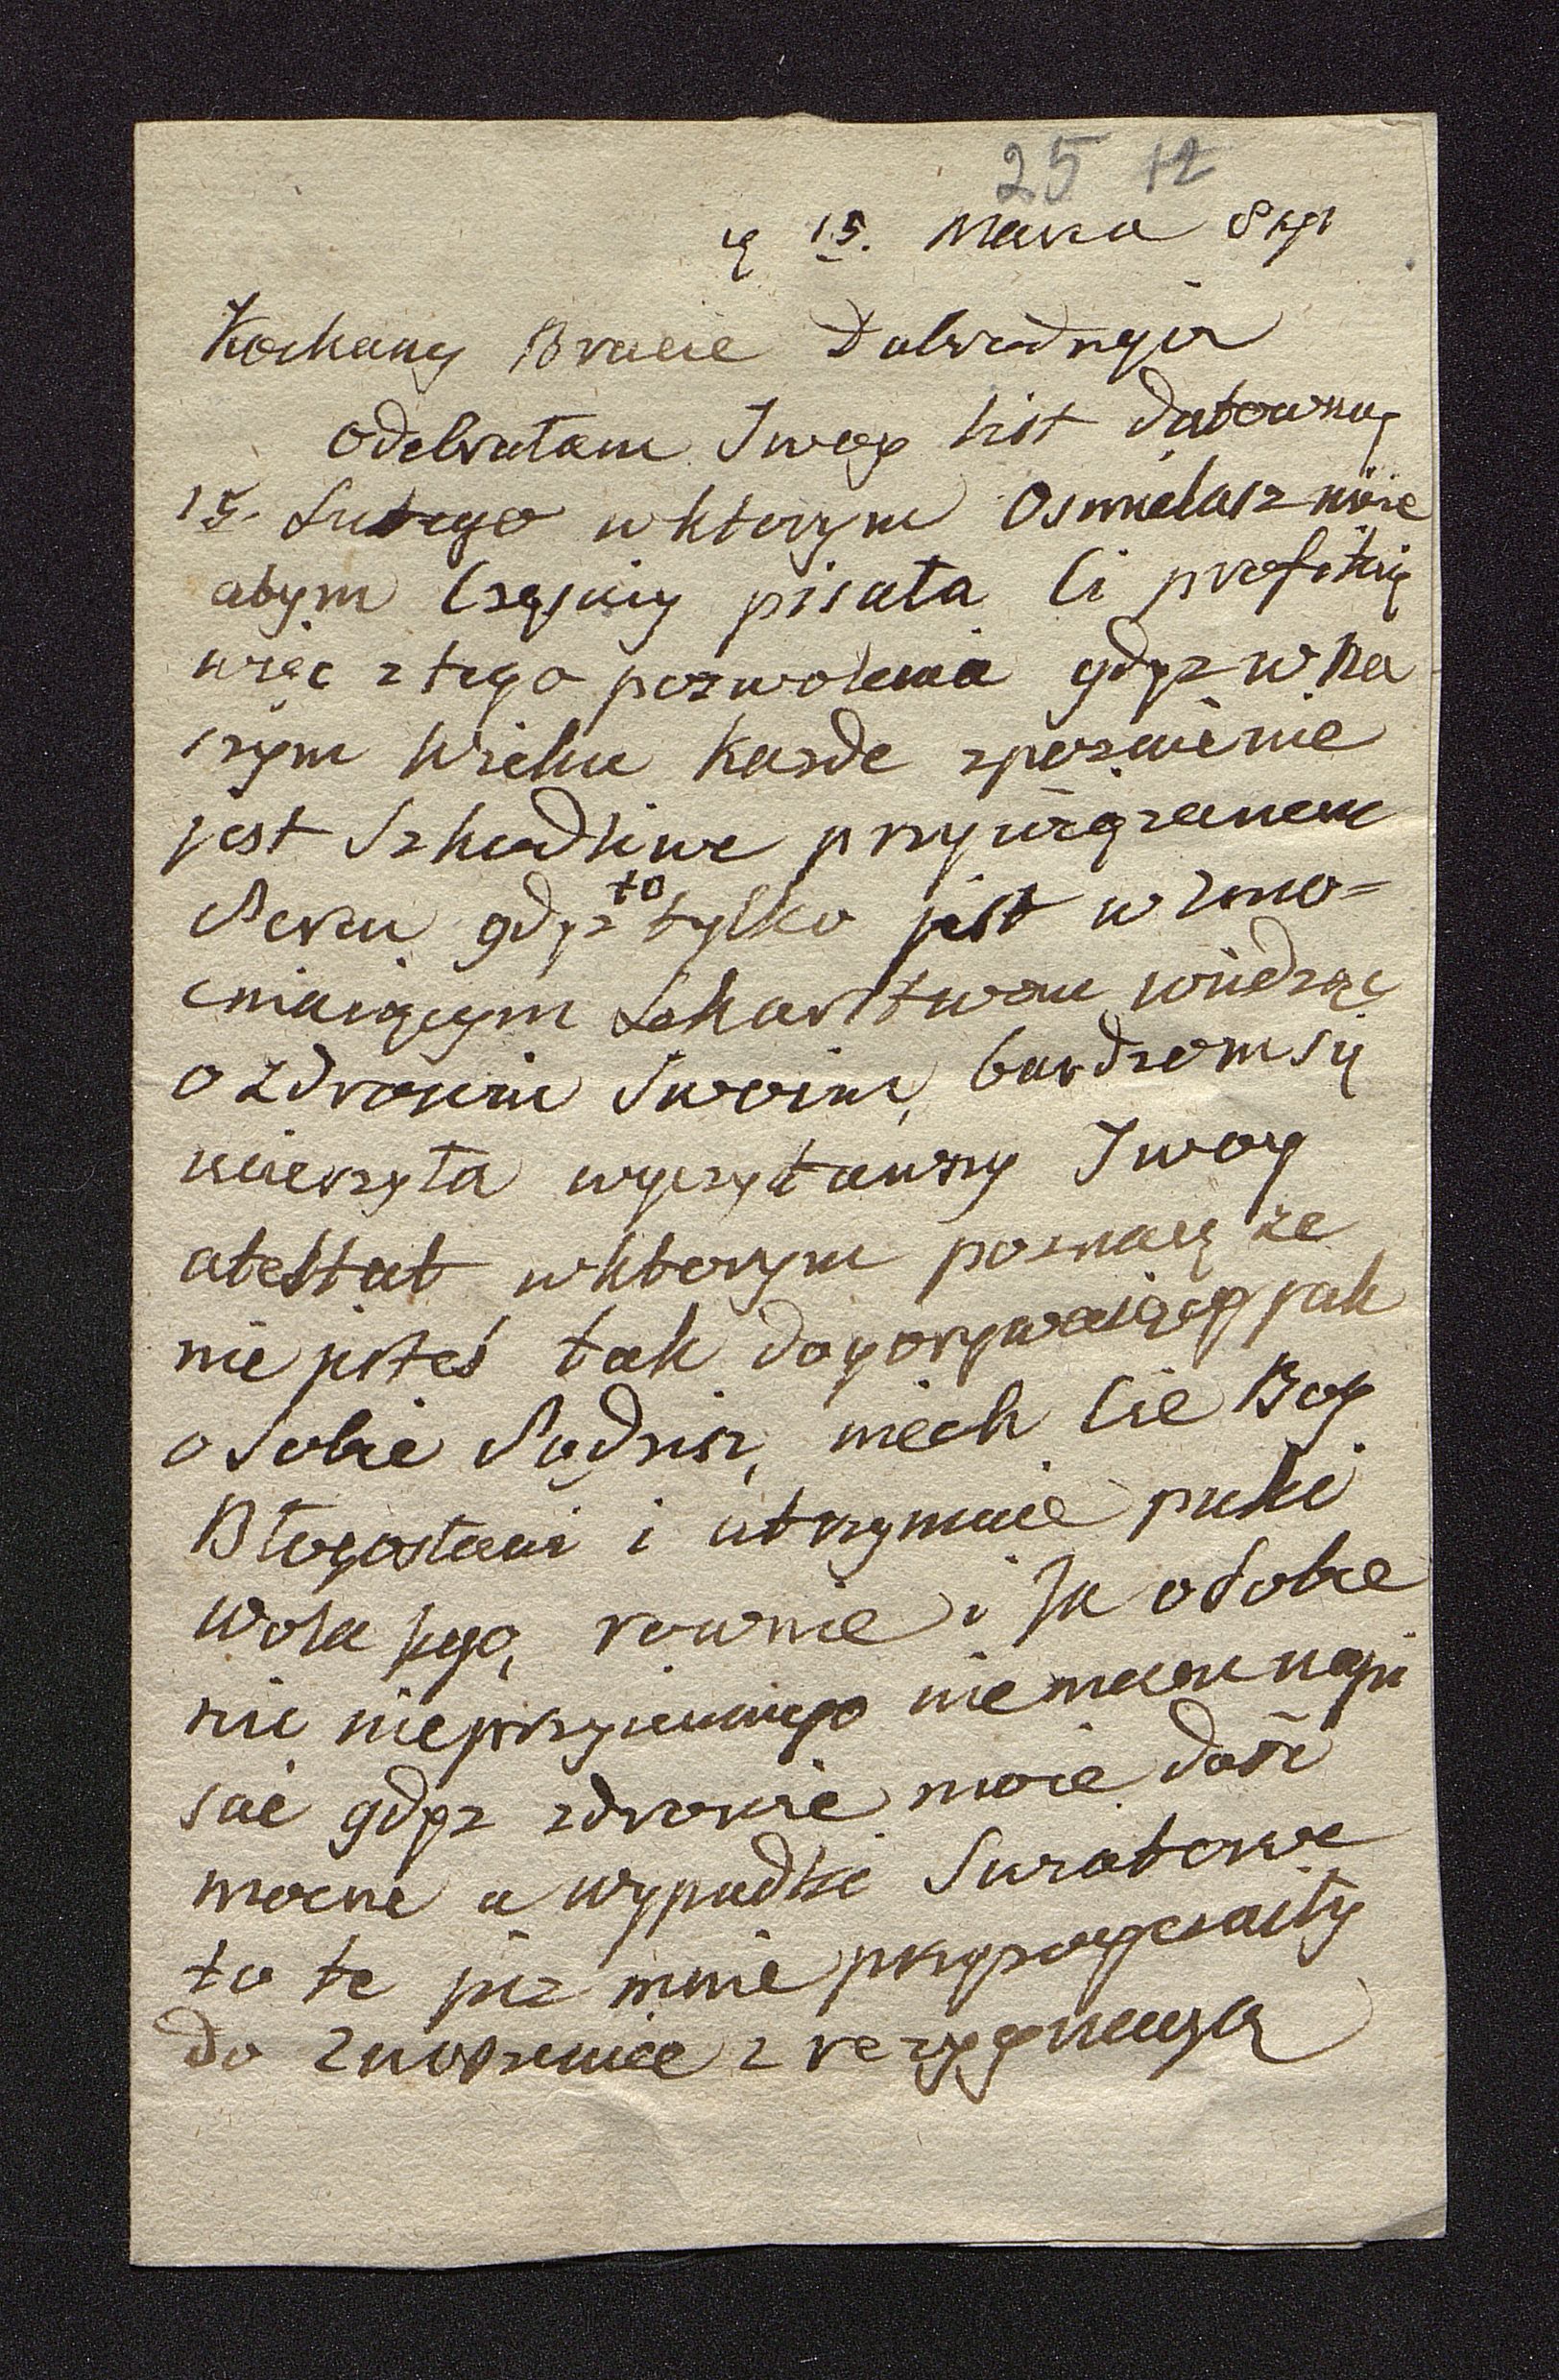 25 12
15. Marca
Kochany Bracie Dobrodzieju
odebrałam Twoy list datowany
15. Lutego w ktorym Osmielasz mie
abym Częściey pisała Ci profituię
więc z tego pozwolenia gdyz w na
szym Wieku Kazde zpoznienie
jest Szkodliwe przywiązanem
Sercu gdyz to tylko jest wzmo=
cniaiącym Lekarstwem wiedząc
o zdrowiu Swoim, bardzom się
ucieszyła wyczytawszy Twoy
atestat w ktorym poznaię ze
nie jesteś tak dogorywaiący jak
o Sobie Sądzisz, niech Cie Bog
Błogosławi i utrzymuie puki
wola jego, rownie i Ja o Sobie
nic nieprzyiemnego nie mam napi
sać gdyz zdrowie moie dość
mocne a wypadki Swiatowe
to te juz mnie przyzwyczaiły
do znoszenia z rezygnacyą